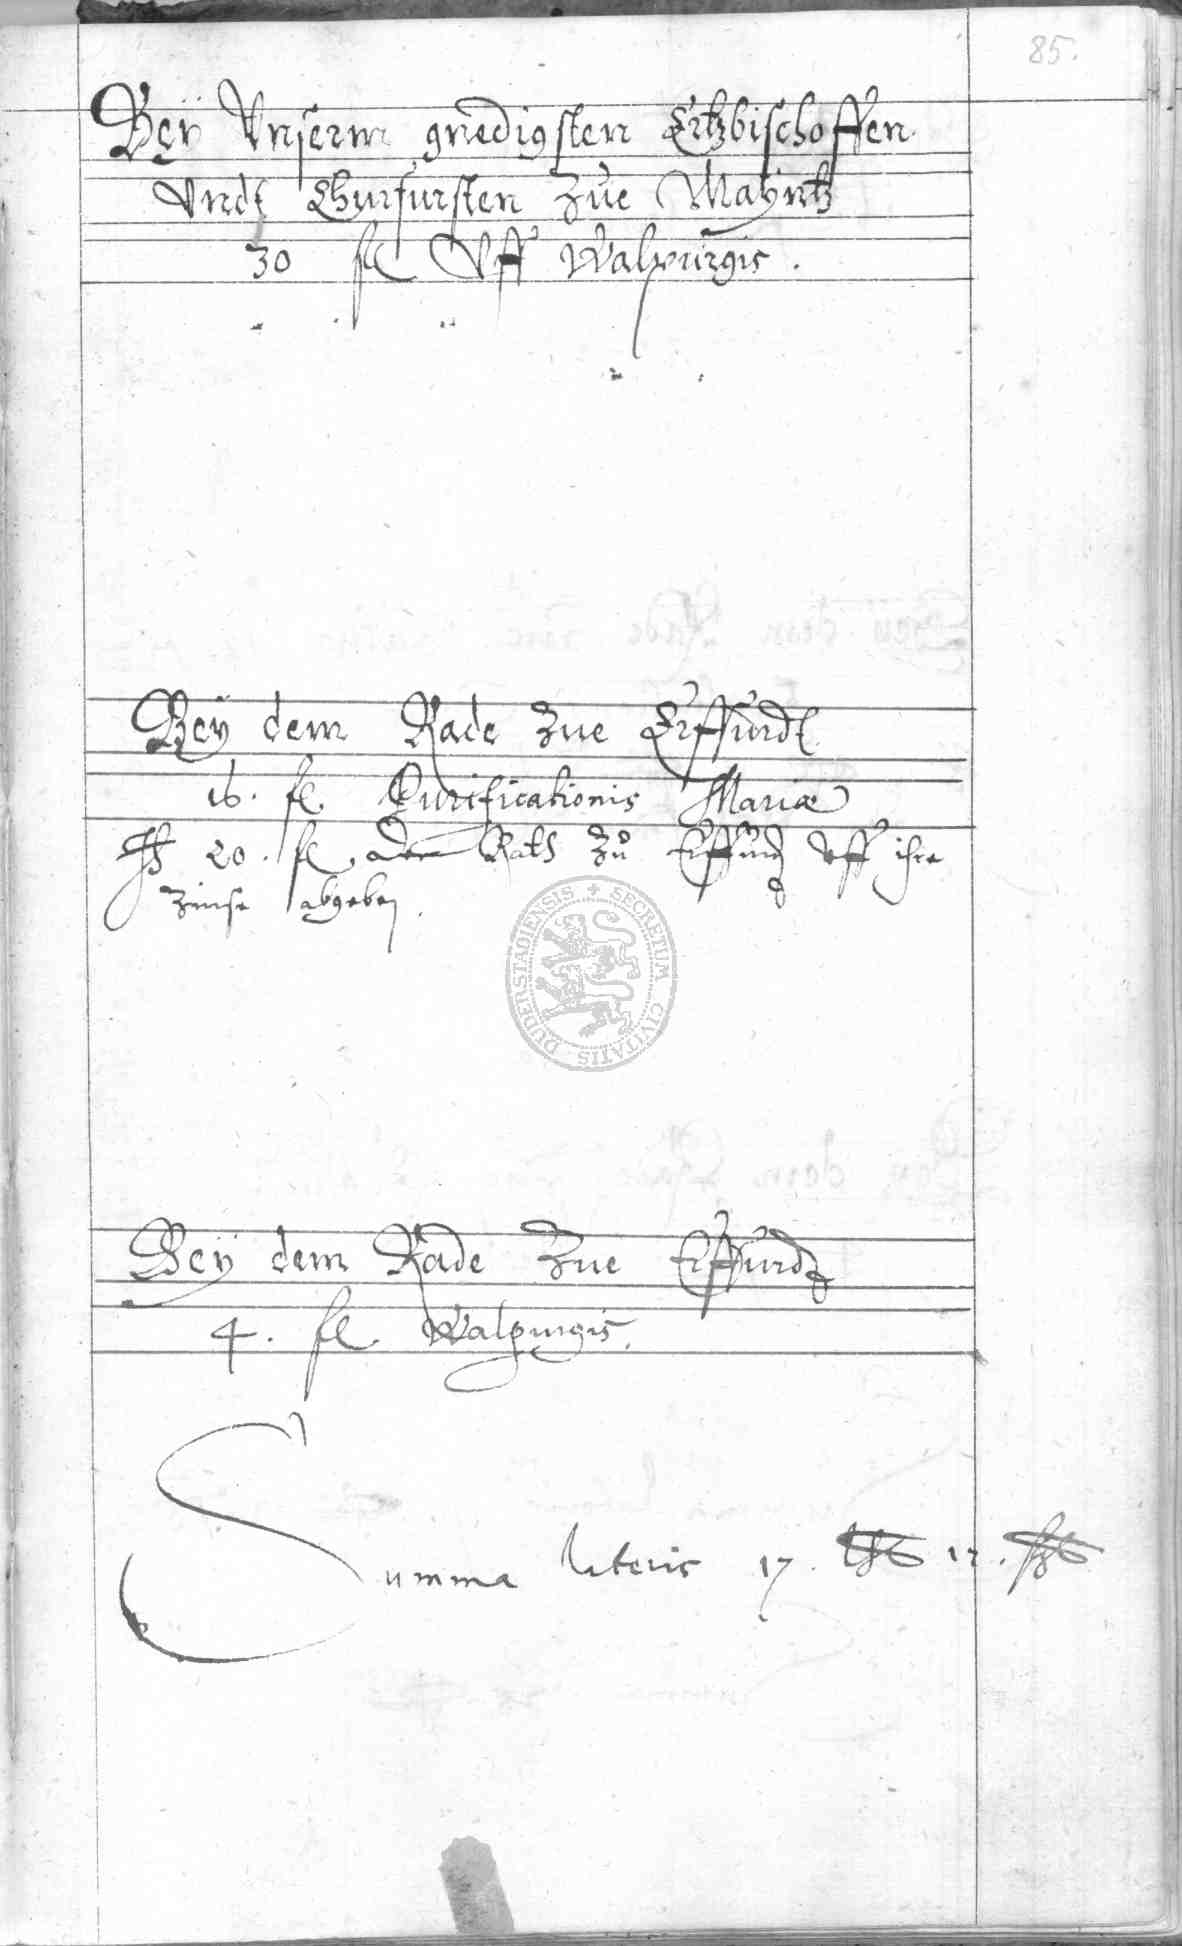 85.
Beÿ Unserm gnedigsten Ertzbischoffen
Undt Churfursten Zue Maÿntz
30 fl Uff Walpurgis.
Beÿ dem Rade Zue Erffurdt
16. fl. Purificationis Mariæ
20. fl. der Rath Zu Erffurd uff ihre
Zinse abgeben.
DUDERSTADIENSIS + SECRETUM CIVITATIS
Beÿ dem Rade Zue Erffurdt
4. fl. Walpurgis.
Summa lateris 17. 12.